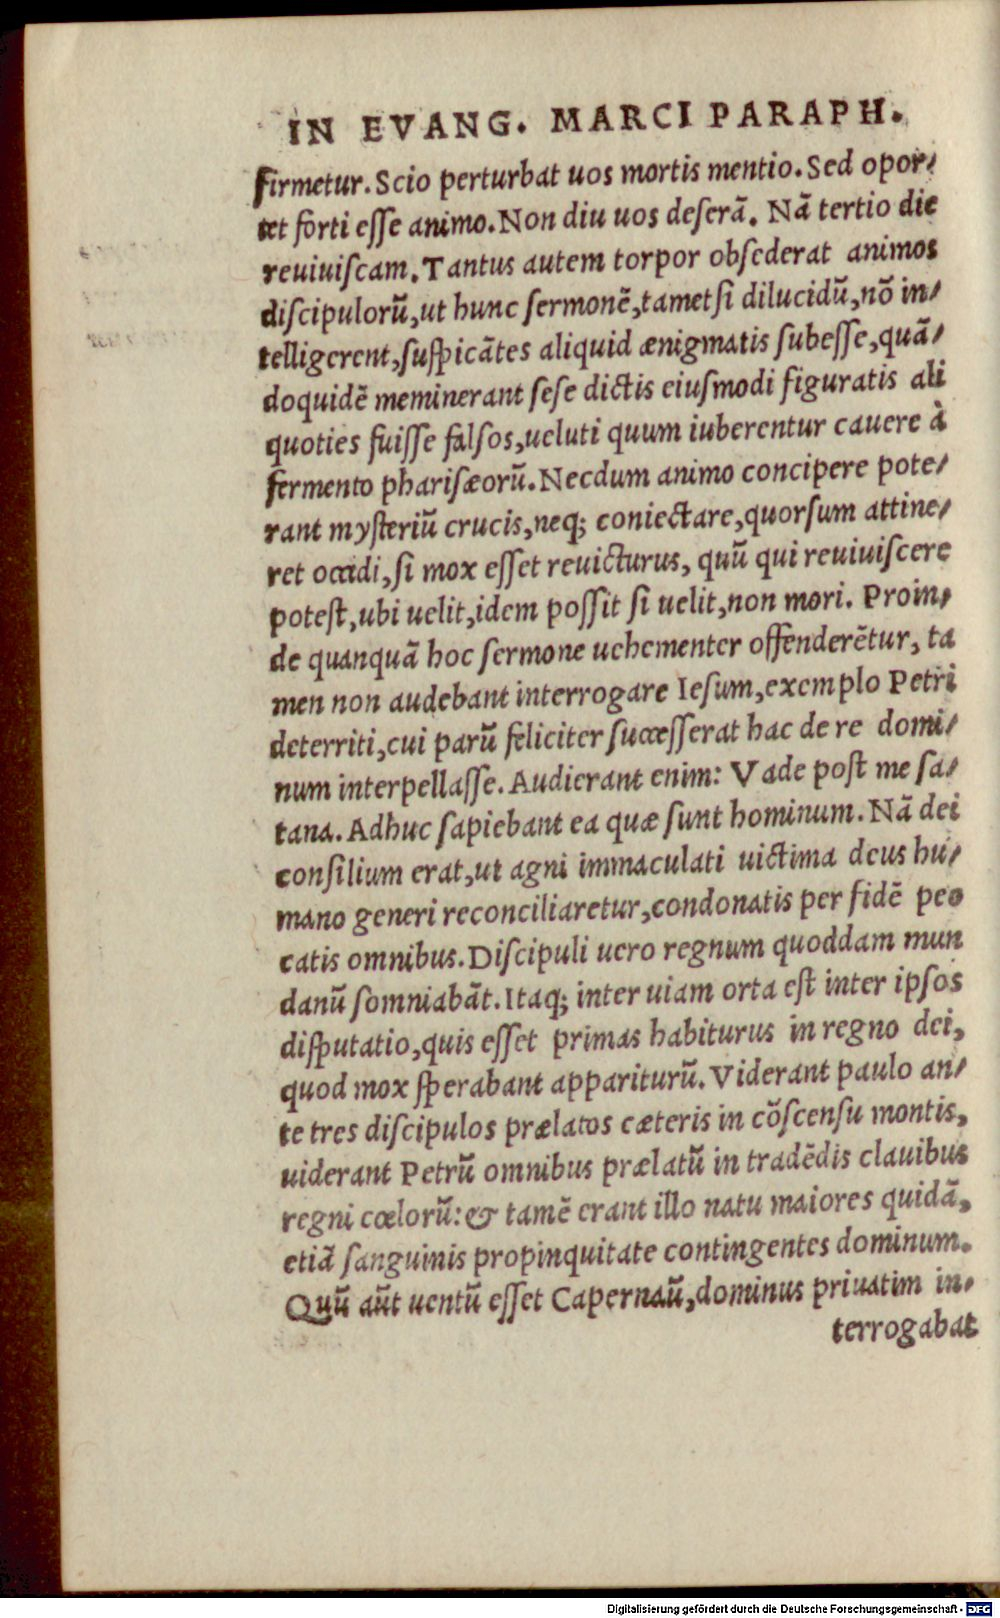 IN EVANG. MARCI PARAPH.
firmetur. Scio perturbat uos mortis mentio. Sed opor/
tet forti eſſe animo. Non diu uos deſerā. Nā tertio die
reuiuiſcam. Tantus autem torpor obſederat animos
diſcipulorū, ut hunc ſermonē, tametſi dilucidū, nō in/
telligerent, ſuſpicātes aliquid ænigmatis ſubeſſe, quā/
doquidē meminerant ſeſe dictis eiuſmodi figuratis ali
quoties fuiſſe falſos, ueluti quum iuberentur cauere à
fermento phariſæorū. Necdum animo concipere pote/
rant myſteriū crucis, neq; coniectare, quorſum attine/
ret occidi, ſi mox eſſet reuicturus, quū qui reuiuiſcere
poteſt, ubi uelit, idem poſſit ſi uelit, non mori. Proin/
de quanquā hoc ſermone uehementer offenderētur, ta
men non audebant interrogare Ieſum, exemplo Petri
deterriti, cui parū feliciter ſucceſſerat hac de re domi/
num interpellaſſe. Audierant enim: Vade poſt me ſa/
tana. Adhuc ſapiebant ea quæ ſunt hominum. Nā dei
conſilium erat, ut agni immaculati uictima deus hu/
mano generi reconciliaretur, condonatis per fidē pec
catis omnibus. Diſcipuli uero regnum quoddam mun
danū ſomniabāt. Itaq; inter uiam orta eſt inter ipſos
diſputatio, quis eſſet primas habiturus in regno dei,
quod mox ſperabant appariturū. Viderant paulo an/
te tres diſcipulos prælatos cæteris in cōſcenſu montis,
uiderant Petrū omnibus prælatū in tradēdis clauibus
regni cœlorū: & tamē erant illo natu maiores quidā,
etiā ſanguinis propinquitate contingentes dominum.
Quū aūt uentū eſſet Capernaū, dominus priuatim in/
terrogabat
Digitalisierung gefördert durch die Deutsche Forschungsgemeinschaft - DFG